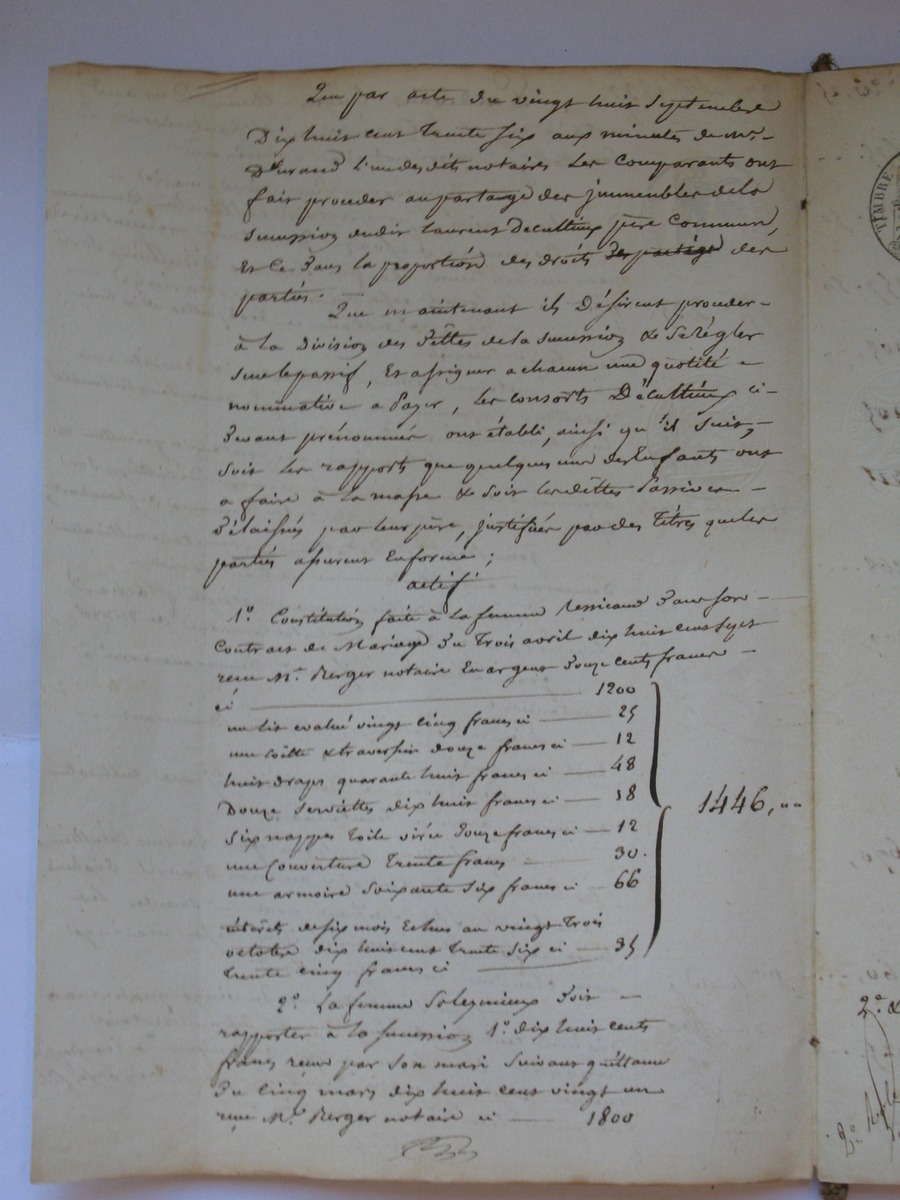 Que par acte du vingt huit Septembre
Dix huit cent trente six aux minutes de Mr.
Durand l'un desdits notaires les comparants ont
fait proceder au partage des jmmeubles de la
succession dudit Laurent Decultieux père commun,
Et ce dans la proportion des droits des partage des
parties.
Que maintenant ils Désirent proceder
à la Division des dêttes de la succession & se Régler
sur le passif, Et assigner a chacun une quotité
nominative a Payer, les consorts Décultieux ci-
devant prénommés ont établi, ainsi qu'il suit,
soit les rapports que quelques uns des Enfants ont
a faire à la masse & soit les dêttes Passives
Délaissés par leur père, justifiés par des Titres que les
parties assurent En forme ;
actif
1o. Constitution faite à la femme Ressicaud dans son
contrat de Mariage du Trois avril dix huit cent sept
reçu Me. Berger notaire En argent Douze cents francs
ci 1200
un lit evalué vingt cinq francs ci 25
une coëtte & traversin douze francs ci 12
huit draps quarante huit francs ci 48
Douze serviettes dix huit francs ci 18
Six nappes toile Douze francs ci 12
une Couverture trente francs 30.
une armoire soixante six francs ci 66
1446, "
intérêts de six mois Echus au vingt trois
octobre dix huit cent trente six ci 35
trente cinq francs ci
2o. La femme Solezmieux doit
rapporter à la succession 1o. dix huit cents
francs reçus par son mari suivant quittance
du cinq mars dix huit cent vingt un
reçue Me. Berger notaire ci 1800
TIMBRE
2o &